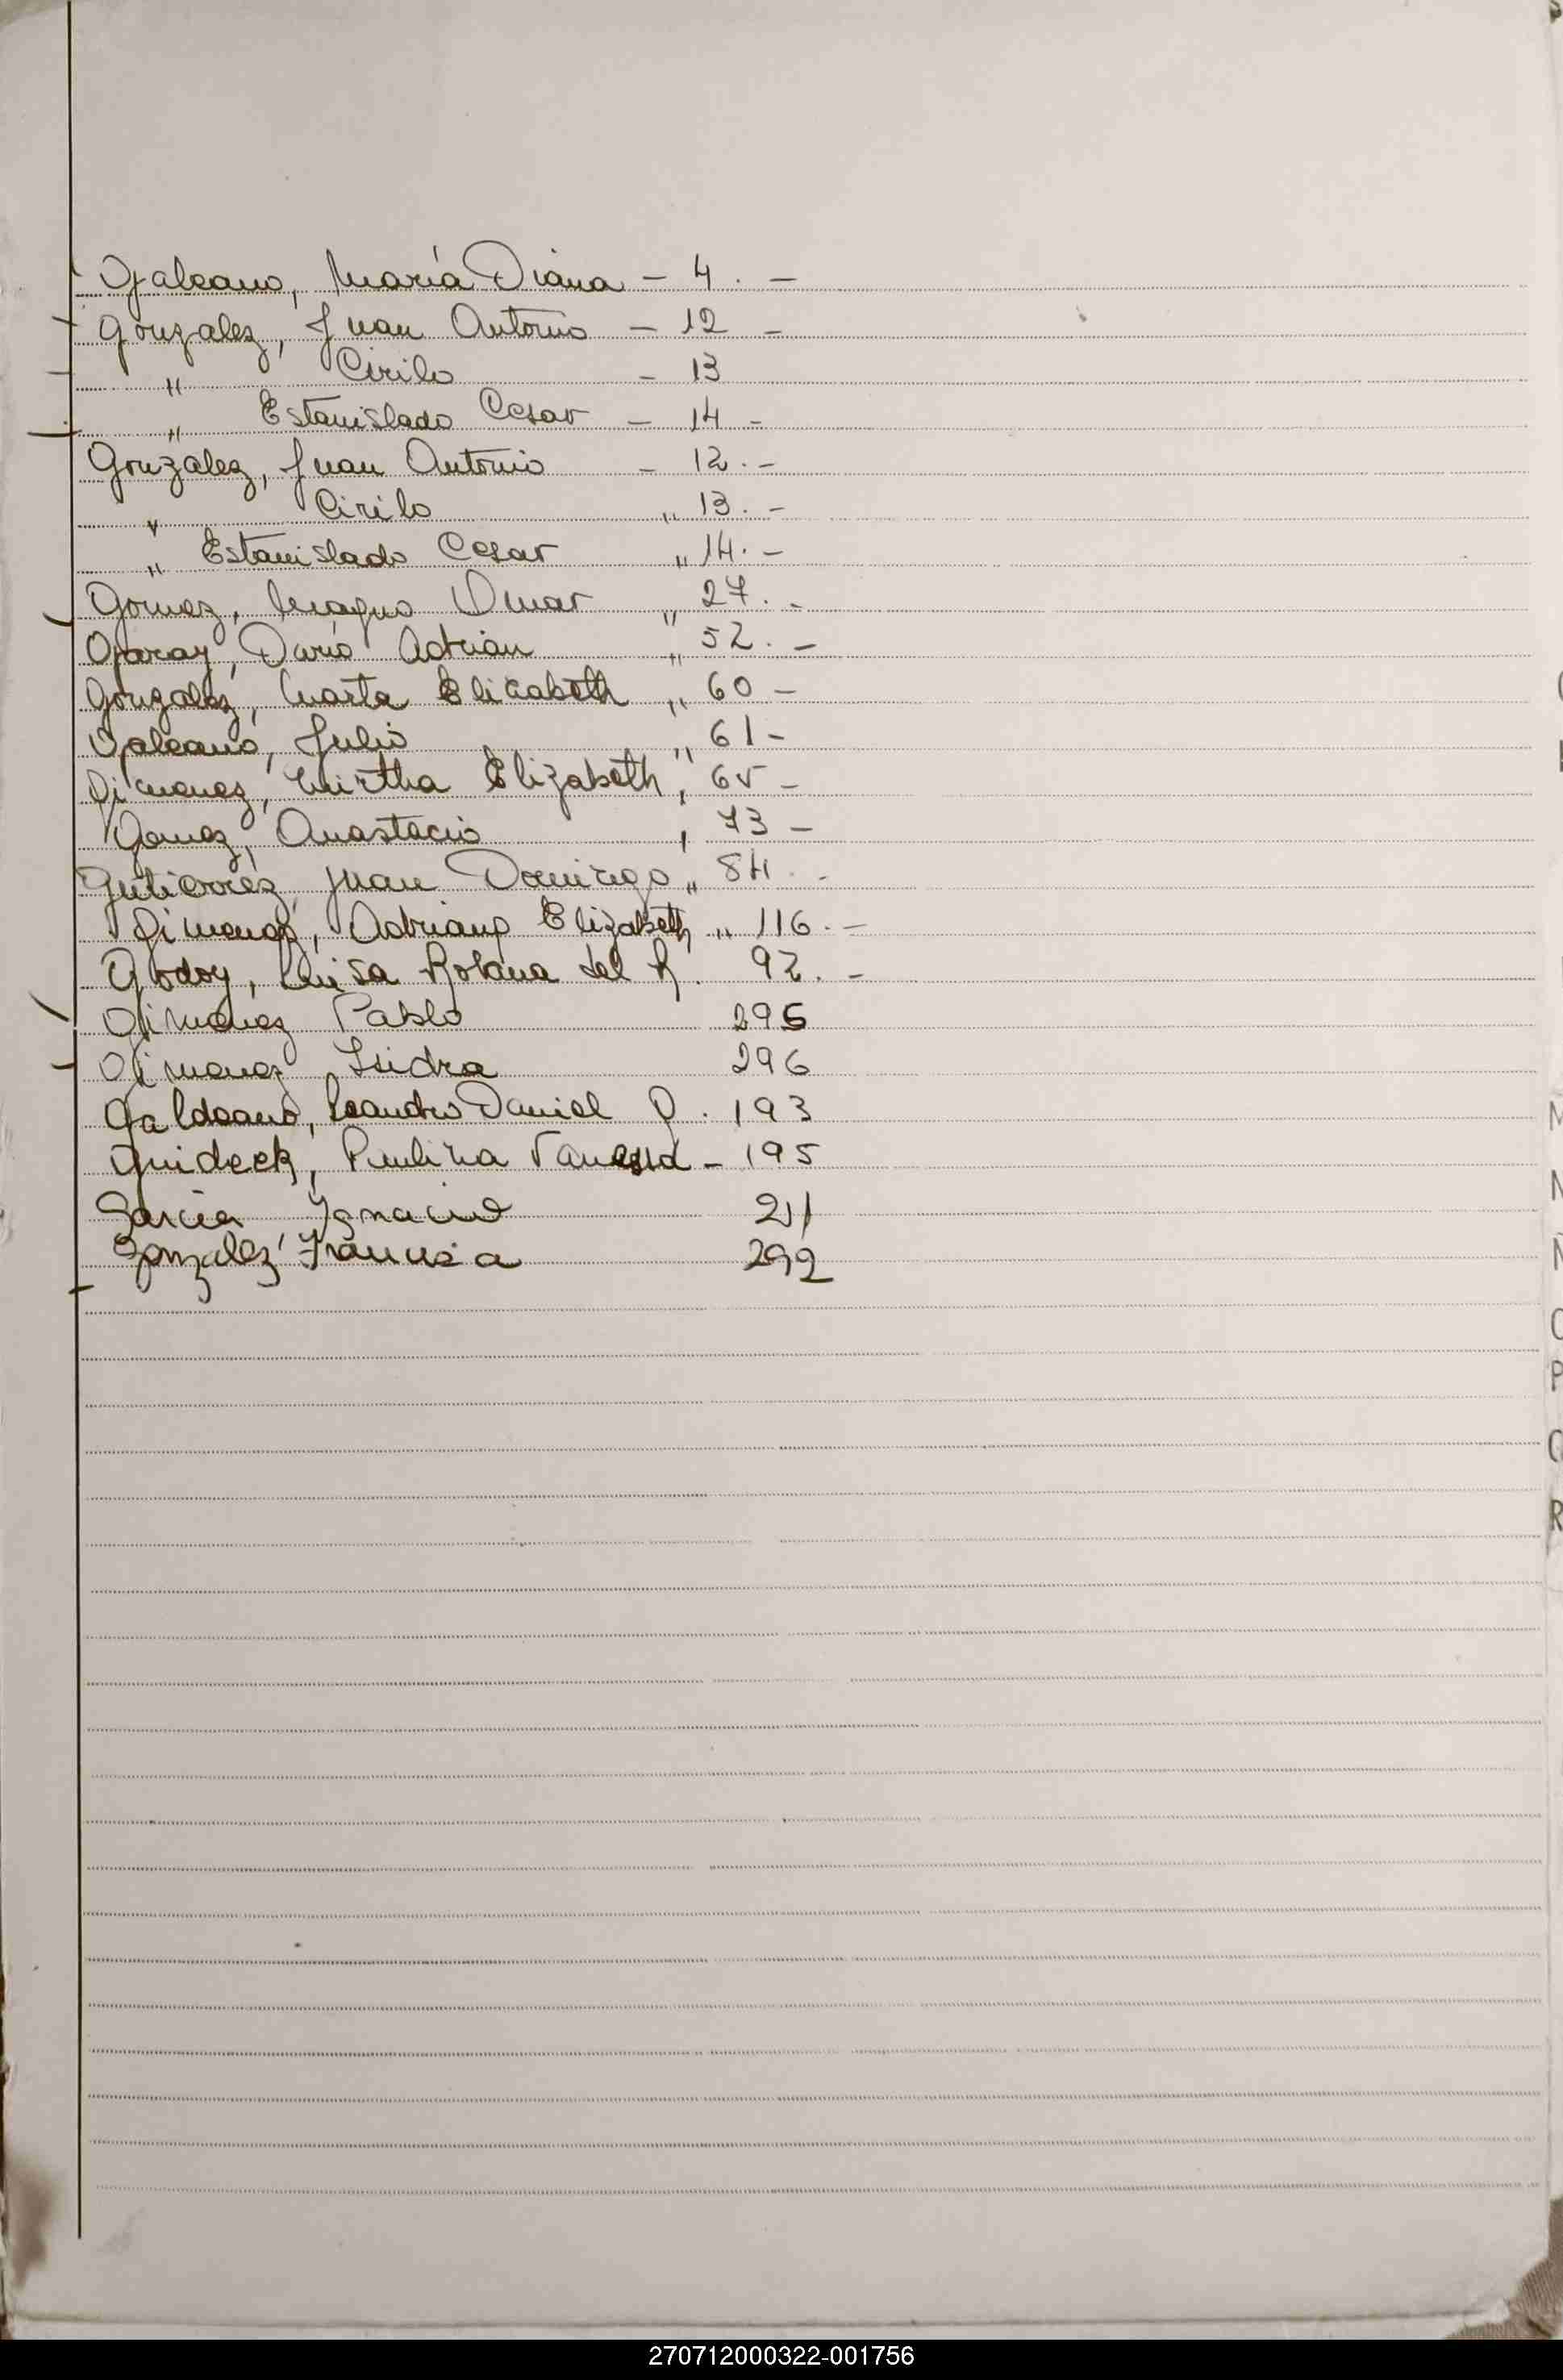 Galeano, María Diana - 4. -
Gonzalez, Juan Antonio - 12 -
" Cirilo - 13
" Estanislado Cesar - 14 -
Gonzalez, Juan Antonio - 12. -
" Cirilo " 13. -
" Estanislado Cesar " 14. -
Gomez, Magno Omar " 27. -
Garay, Darío Adrián " 52. -
Gonzalez, Marta Elizabeth " 60 -
Galeano, Julio " 61 -
Gimenez, Mirtha Elizabeth " 65 -
Gomez, Anastacio " 73 -
Gutierrez, Juan Domingo " 84. -
Gimenez, Adriana Elizabeth " 116. -
Godoy, Luisa Rosana del R. 92. -
Gimenez Pablo 295
Gimenez Isidra 296
Galdeano, Leandro Daniel Q. 193
Guideck, Paulina Vanessa - 195
Garcia Ignacio 211
Gonzalez Francisca 292
M
N
Ñ
O
P
Q
R
270712000322-001756